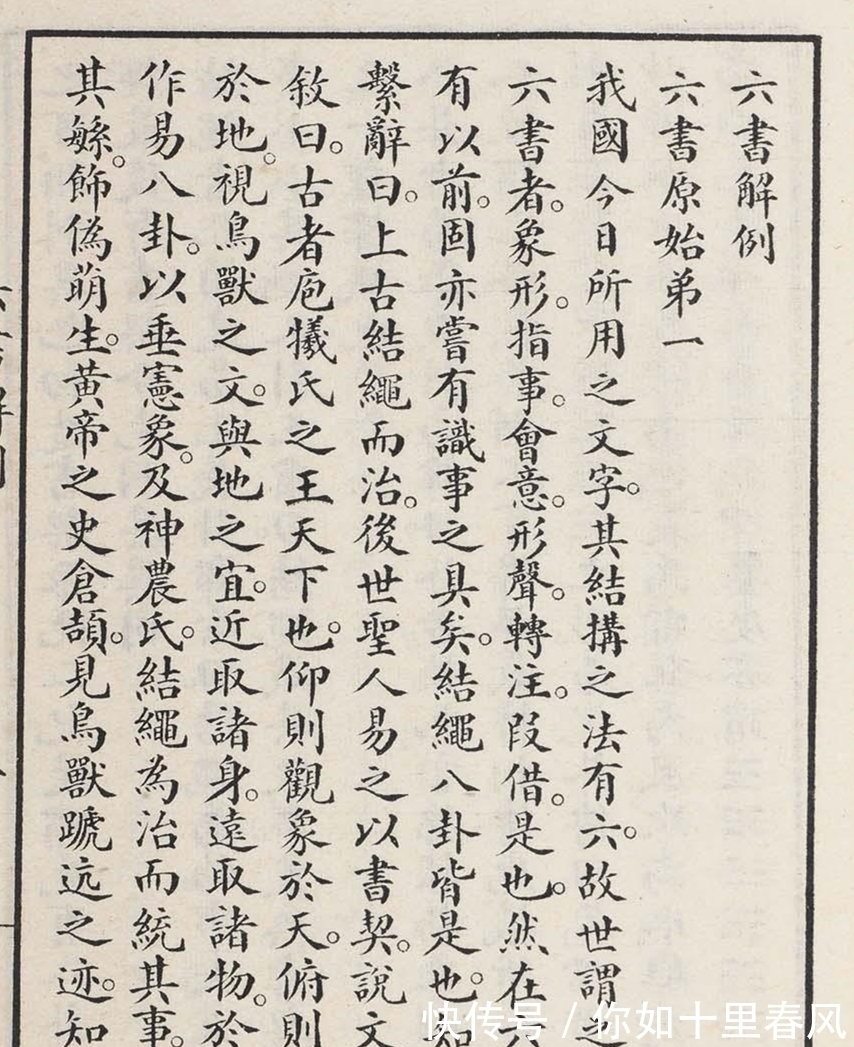 六書解例
六書原始弟一
我國今日所用之文字。其結構之法有六。故世謂之
六書者。象形。指事。會意。形聲。轉注。叚借。是也。然在六
有以前。固亦嘗有識事之具矣。結繩八卦皆是也。
繫辭曰。上古結繩而治。後世聖人易之以書契。說文
敘曰。古者庖犧氏之王天下也。仰則觀象於天。俯則
於地。視鳥獸之文。與地之宜。近取諸身。遠取諸物。於
作易八卦。以垂憲象。及神農氏。結繩為治而統其事。
其緐。飾偽萌生。黃帝之史倉頡。見鳥獸蹏迒之迹。知
快传号 / 你如十里春风